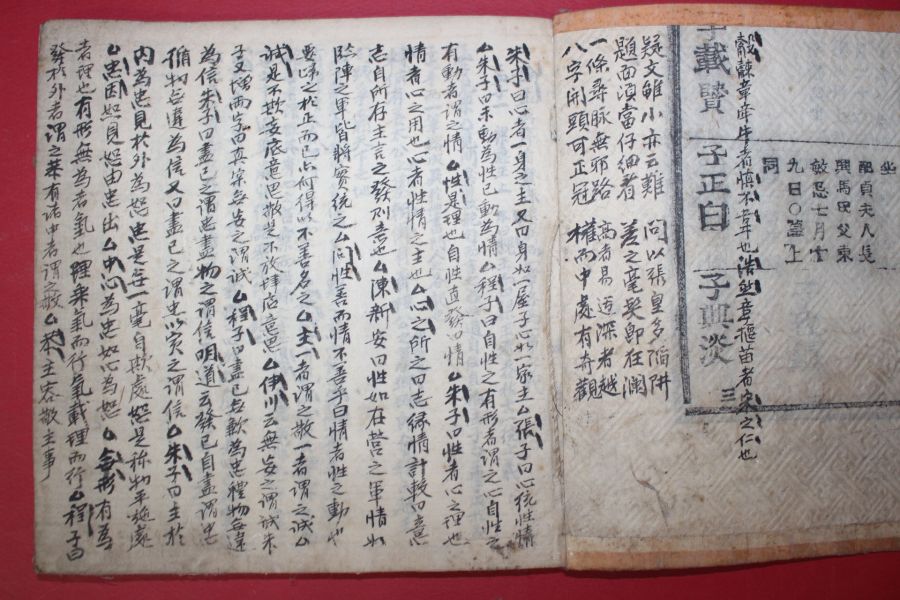 配貞夫人長
興馬氏父東
敏忌七月廿
九日○墓上
同
觳觫章牽牛者慎不辜也浩然章揠苗者宋之仁也
子載贒 子正白 子興淡 三
疑文雖小亦云難 問以張皇多陷阱
題面須當仔細看 差之毫髮即在瀾
一條尋脉無邪路 高者易過深者越
八字開頭可正冠 權而中處有奇觀
朱子曰心者一身之主又曰身如一屋子心如一家主△張子曰心統性情
△朱子曰未動為性已動為情△程子曰自性之有形者謂之心自性之
有動者謂之情△性是理也自性直發曰情△朱子曰性者心之理也
情者心之用也心者性情之主也△心之所之曰志緣情計較曰意
志自所存主言之發則意也△陳新安曰性如在營之軍情如
臨陣之軍皆將實統之△問性善而情不善乎曰情者性之動也
要歸之於正而已亦何得以不善名之△主一者謂之敬一者謂之誠△
誠是不欺妄底意思敬是不放肆底意思△伊川云無妄之謂誠朱
子又增兩字曰真実無妄之謂誠△程子曰盡己無歉為忠體物無違
為信朱子曰盡己之謂忠盡物之謂信明道云發己自盡謂忠
循物無違為信又曰盡己之謂忠以实之謂信△朱子曰主於
內為忠見於外為恕忠是無一毫自欺處恕是称物平施處
△忠因恕見恕由忠出△中心為忠如心為恕△形有為
者理也有形無為者氣也理乘氣而行氣載理而行△程子曰
發於外者謂之恭有諸中者謂之敬△恭主容敬主事